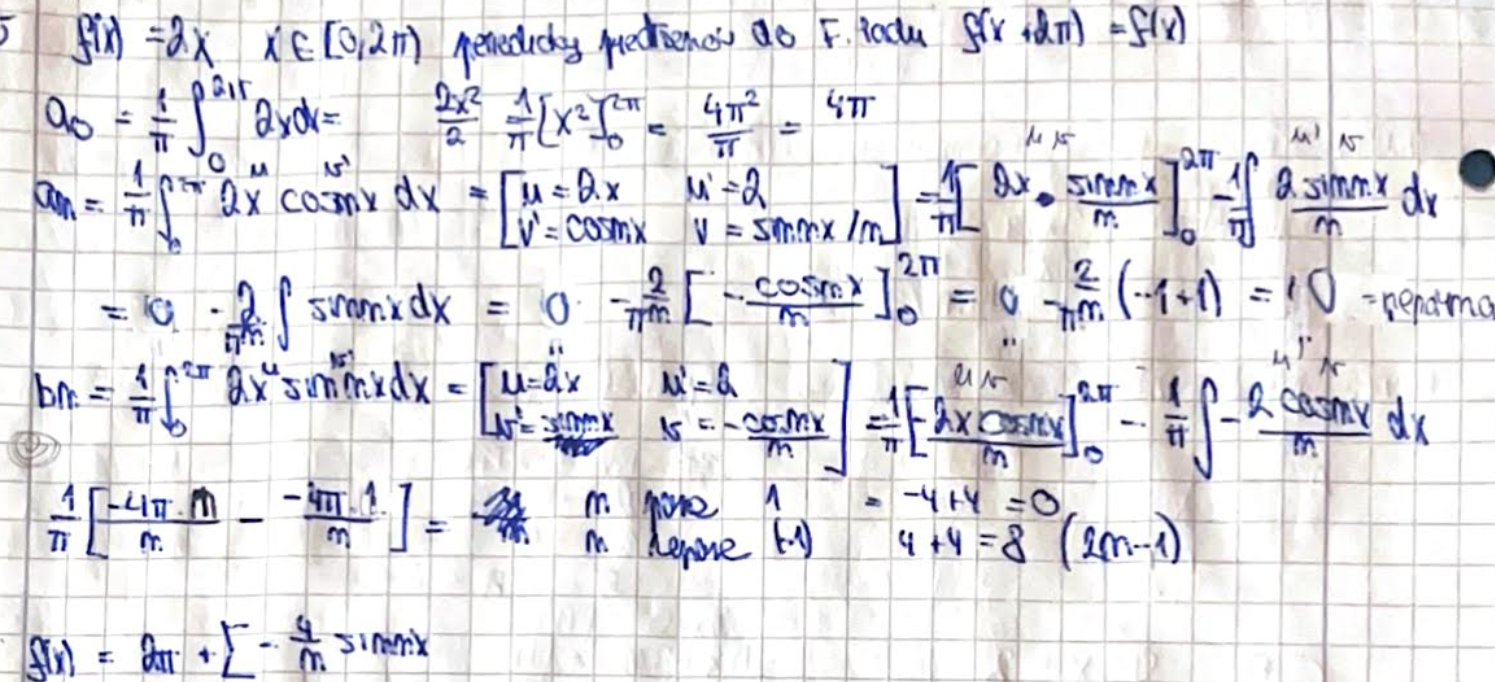 5 f(x) = 2x x ∈ [0, 2π) do F. radu f(x + 2π) = f(x)
a0 = 1/π ∫_0^{2π} 2x dx = 2x²/2 1/π [x²]_0^{2π} = 4π²/π = 4π
an = 1/π ∫_0^{2π} 2x cos nx dx = [u = 2x u' = 2 v' = cos nx v = sin nx / n] = 1/π [2x · sin nx / n]_0^{2π} - 1/π ∫ 2 sin nx / n dx
= 0 - 2/πn ∫ sin nx dx = 0 - 2/πn [- cos nx / n]_0^{2π} = 0 - 2/πn (-1 + 1) = 0
bn = 1/π ∫_0^{2π} 2x sin nx dx = [u = 2x u' = 2 v' = sin nx v = - cos nx / n] = 1/π [- 2x cos nx / n]_0^{2π} - 1/π ∫ - 2 cos nx / n dx
1/π [-4π · n / n - -4π · 1 / n] = n 1 = -4 + 4 = 0
n (-1) 4 + 4 = 8 (2n-1)
f(x) = 2π + Σ - 4/n sin nx